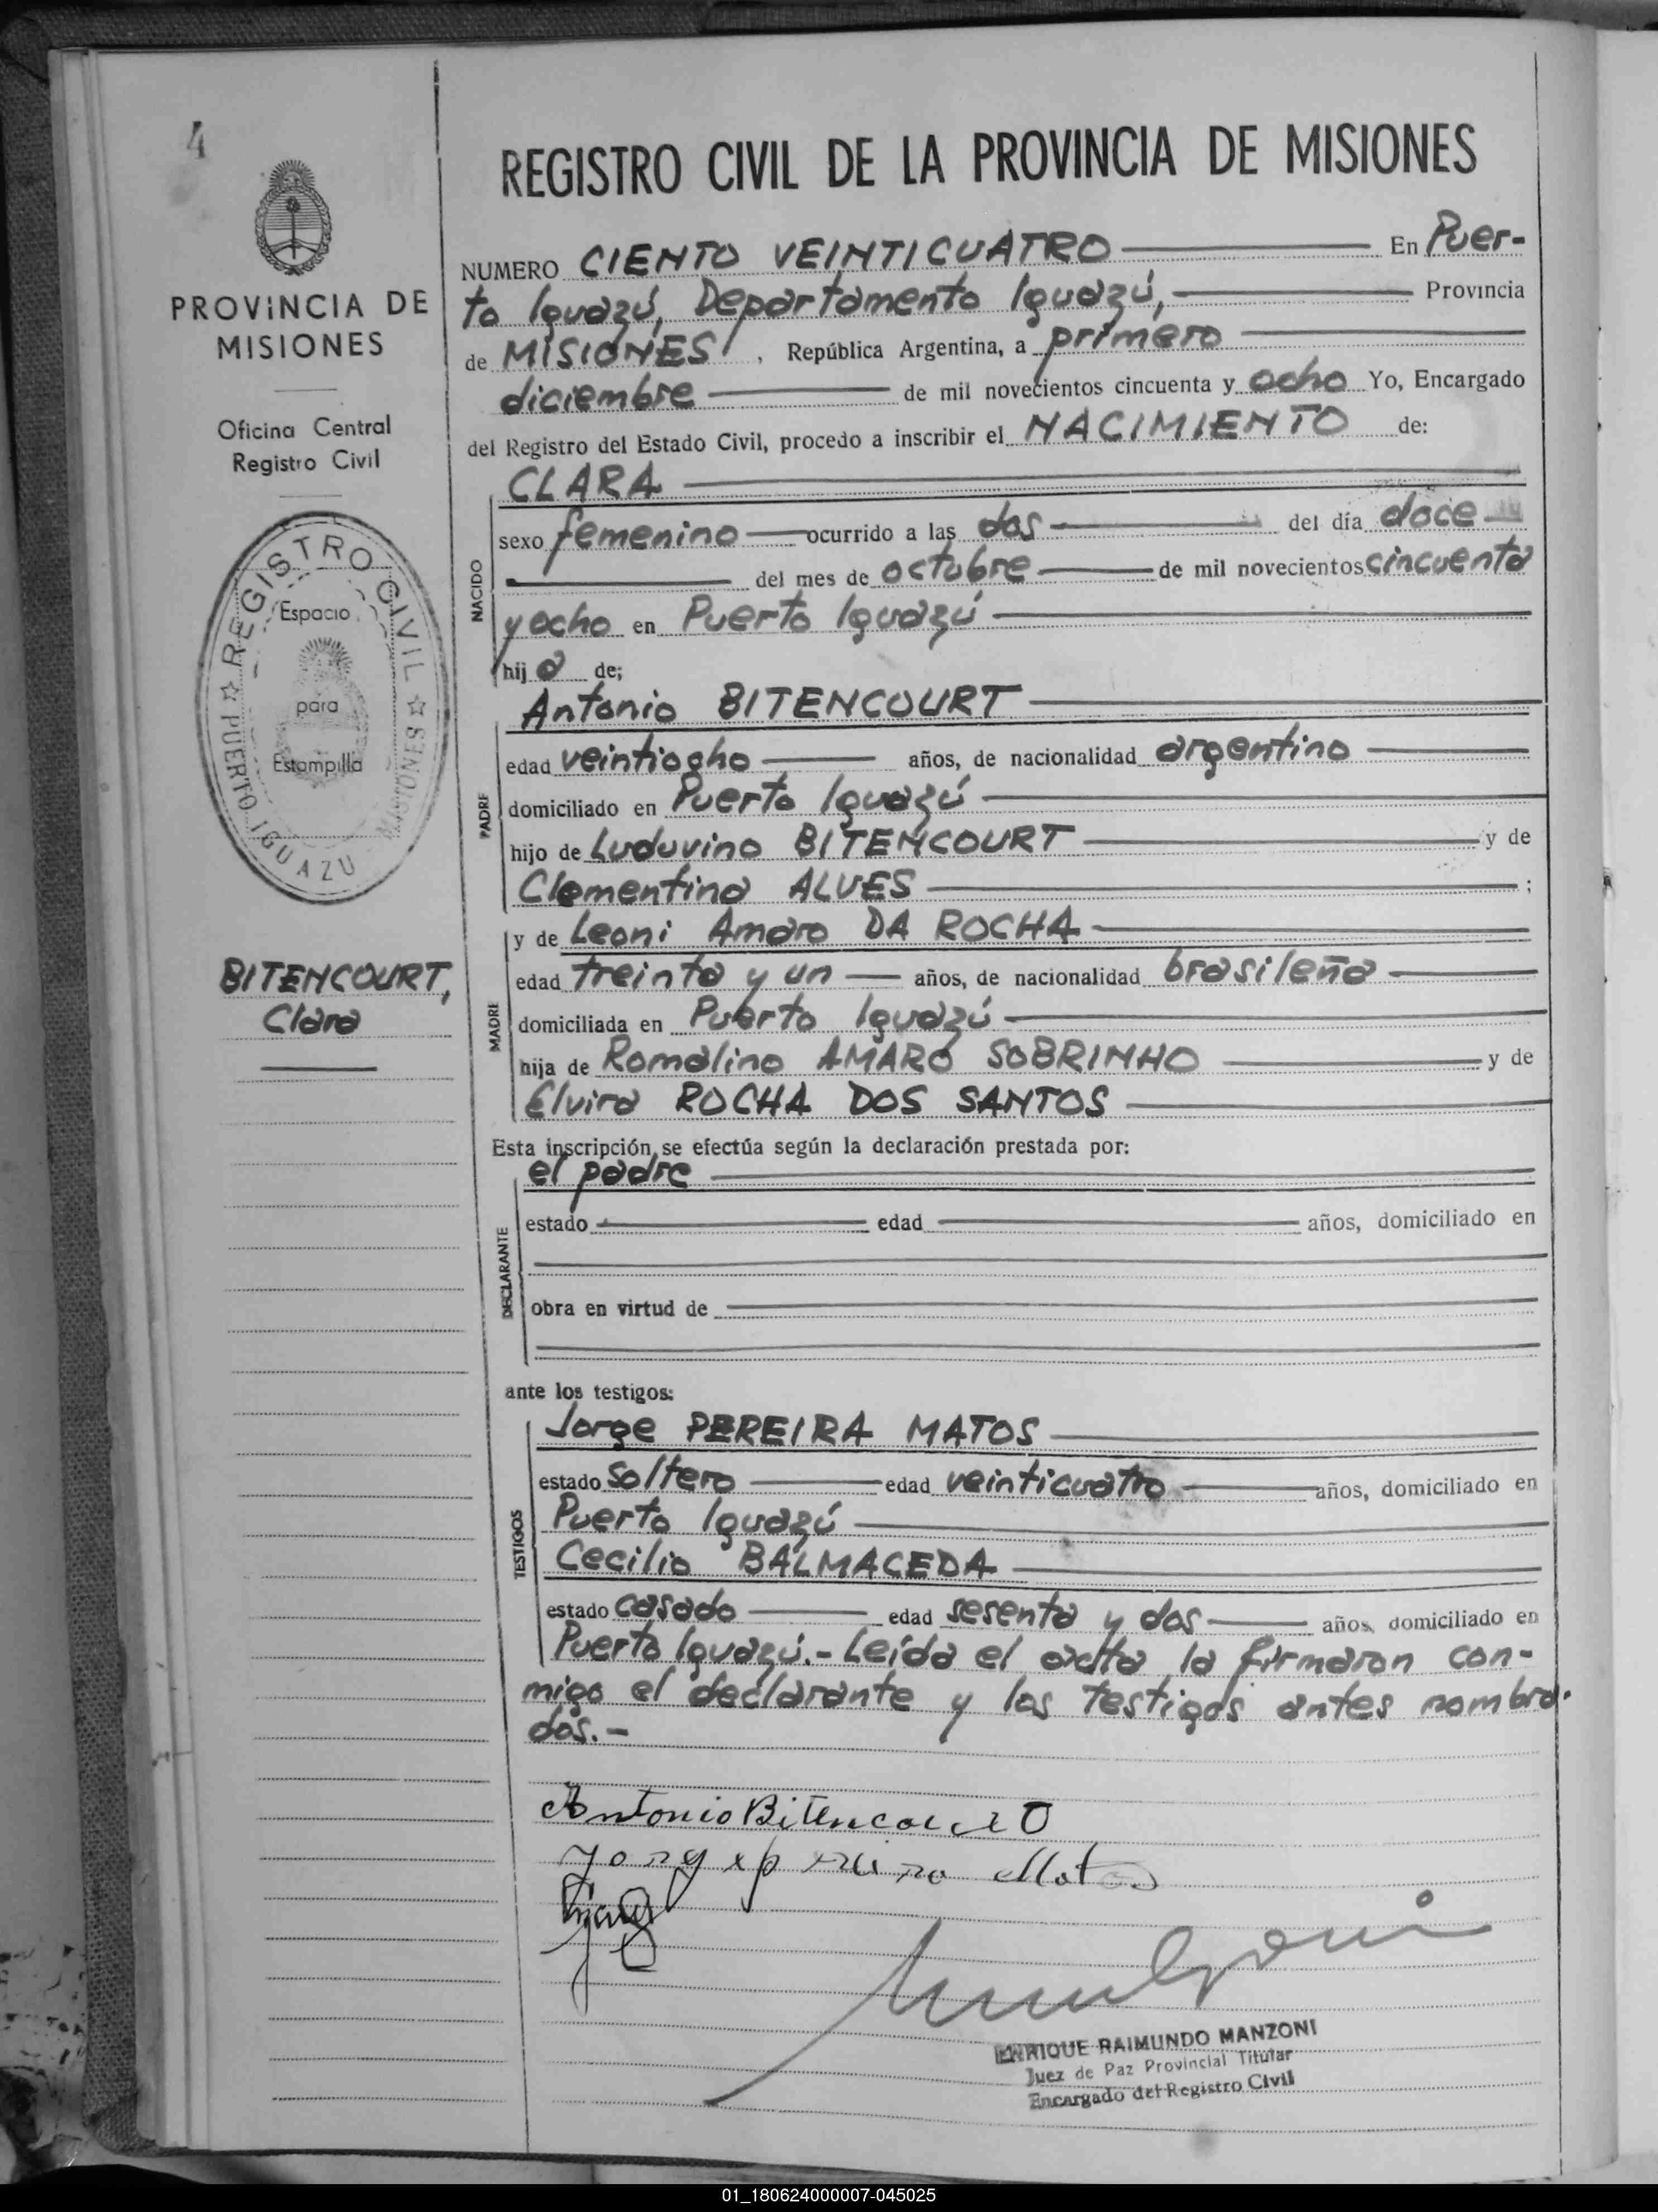 4
REGISTRO CIVIL DE LA PROVINCIA DE MISIONES
PROVINCIA DE
MISIONES
Oficina Central
Registro Civil
REGISTRO CIVIL
PUERTO IGUAZU
MISIONES
Espacio
para
Estampilla
BITENCOURT,
Clara
NUMERO CIENTO VEINTICUATRO En Puer-
to Iguazú, Departamento Iguazú, Provincia
de MISIONES, República Argentina, a primero
diciembre de mil novecientos cincuenta y ocho Yo, Encargado
del Registro del Estado Civil, procedo a inscribir el NACIMIENTO de:
NACIDO
CLARA
sexo femenino ocurrido a las dos del día doce
del mes de octubre de mil novecientos cincuenta
y ocho en Puerto Iguazú
hij a de;
PADRE
Antonio BITENCOURT
edad veintiocho años, de nacionalidad argentino
domiciliado en Puerto Iguazú
hijo de Luduvino BITENCOURT y de
Clementina ALVES ;
MADRE
y de Leoni Amaro DA ROCHA
edad treinta y un años, de nacionalidad brasileña
domiciliada en Puerto Iguazú
hija de Romalino AMARO SOBRINHO y de
Elvira ROCHA DOS SANTOS
Esta inscripción se efectúa según la declaración prestada por:
DECLARANTE
el padre
estado edad años, domiciliado en
obra en virtud de
ante los testigos:
TESTIGOS
Jorge PEREIRA MATOS
estado soltero edad veinticuatro años, domiciliado en
Puerto Iguazú
Cecilio BALMACEDA
estado casado edad sesenta y dos años, domiciliado en
Puerto Iguazú.- Leída el acta la firmaron con-
migo el declarante y los testigos antes nombra-
dos.-
Antonio Bitencourt
ENRIQUE RAIMUNDO MANZONI
Juez de Paz Provincial Titular
Encargado del Registro Civil
01_180624000007-045025